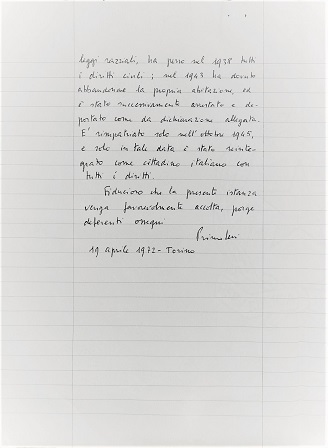 leggi razziali, ha perso nel 1938 tutti
i diritti civili; nel 1943 ha dovuto
abbandonare la propria abitazione, ed
è stato successivamente arrestato e de-
portato come da dichiarazione allegata.
E' rimpatriato solo nell'ottobre 1945,
e solo in tale data è stato reinte-
grato come cittadino italiano con
tutti i diritti.
Fiducioso che la presente istanza
venga favorevolmente accolta, porge
deferenti ossequi
Primo Levi
19 aprile 1972 - Torino